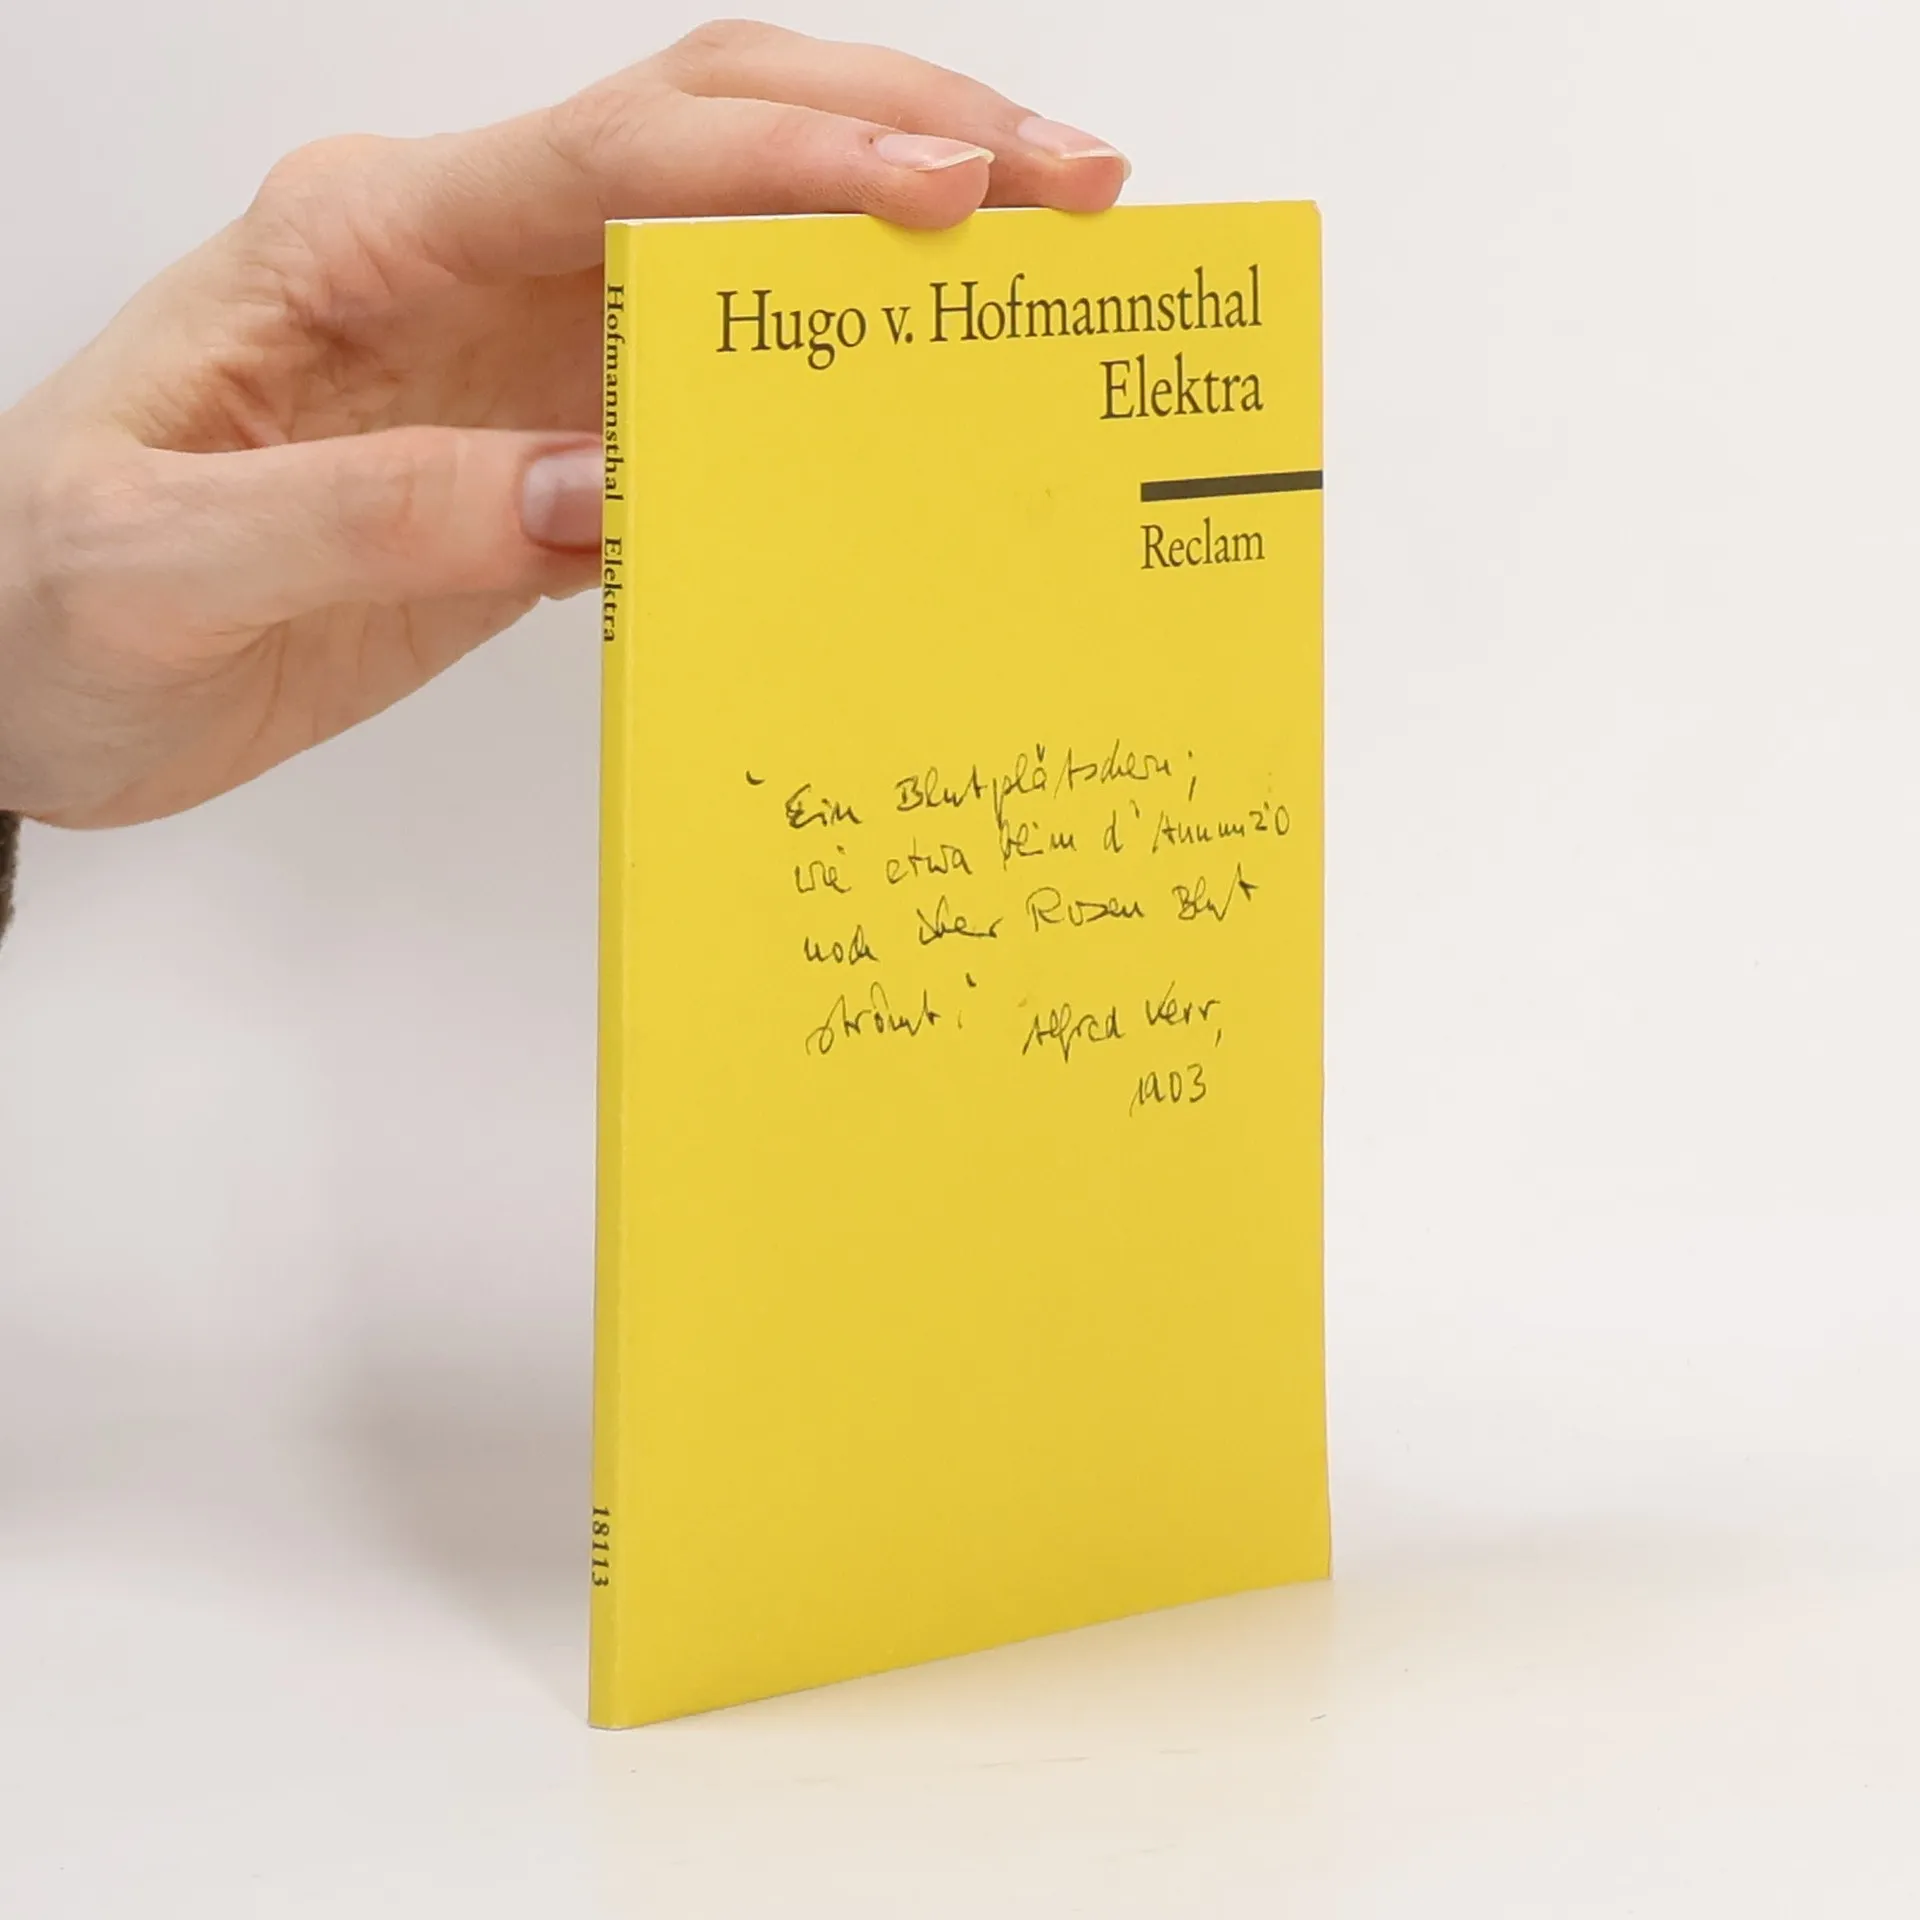 Hugo v. Hofmannsthal
Elektra
Reclam
Hofmannsthal Elektra
18113
‘Ein Blutplätschern;
wie etwa beim d'Annunzio
noch über Rosen Blut
strömt.‘ Alfred Kerr,
1903